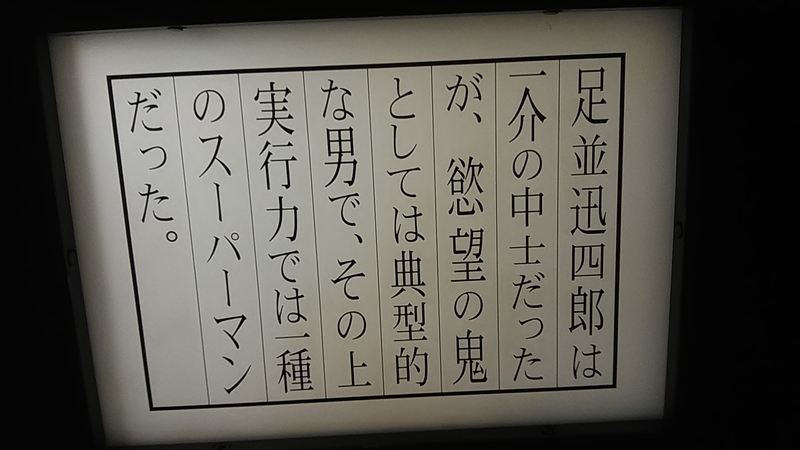 足並迅四郎は
一介の中士だった
が、慾望の鬼
としては典型的
な男で、その上
実行力では一種
のスーパーマン
だった。